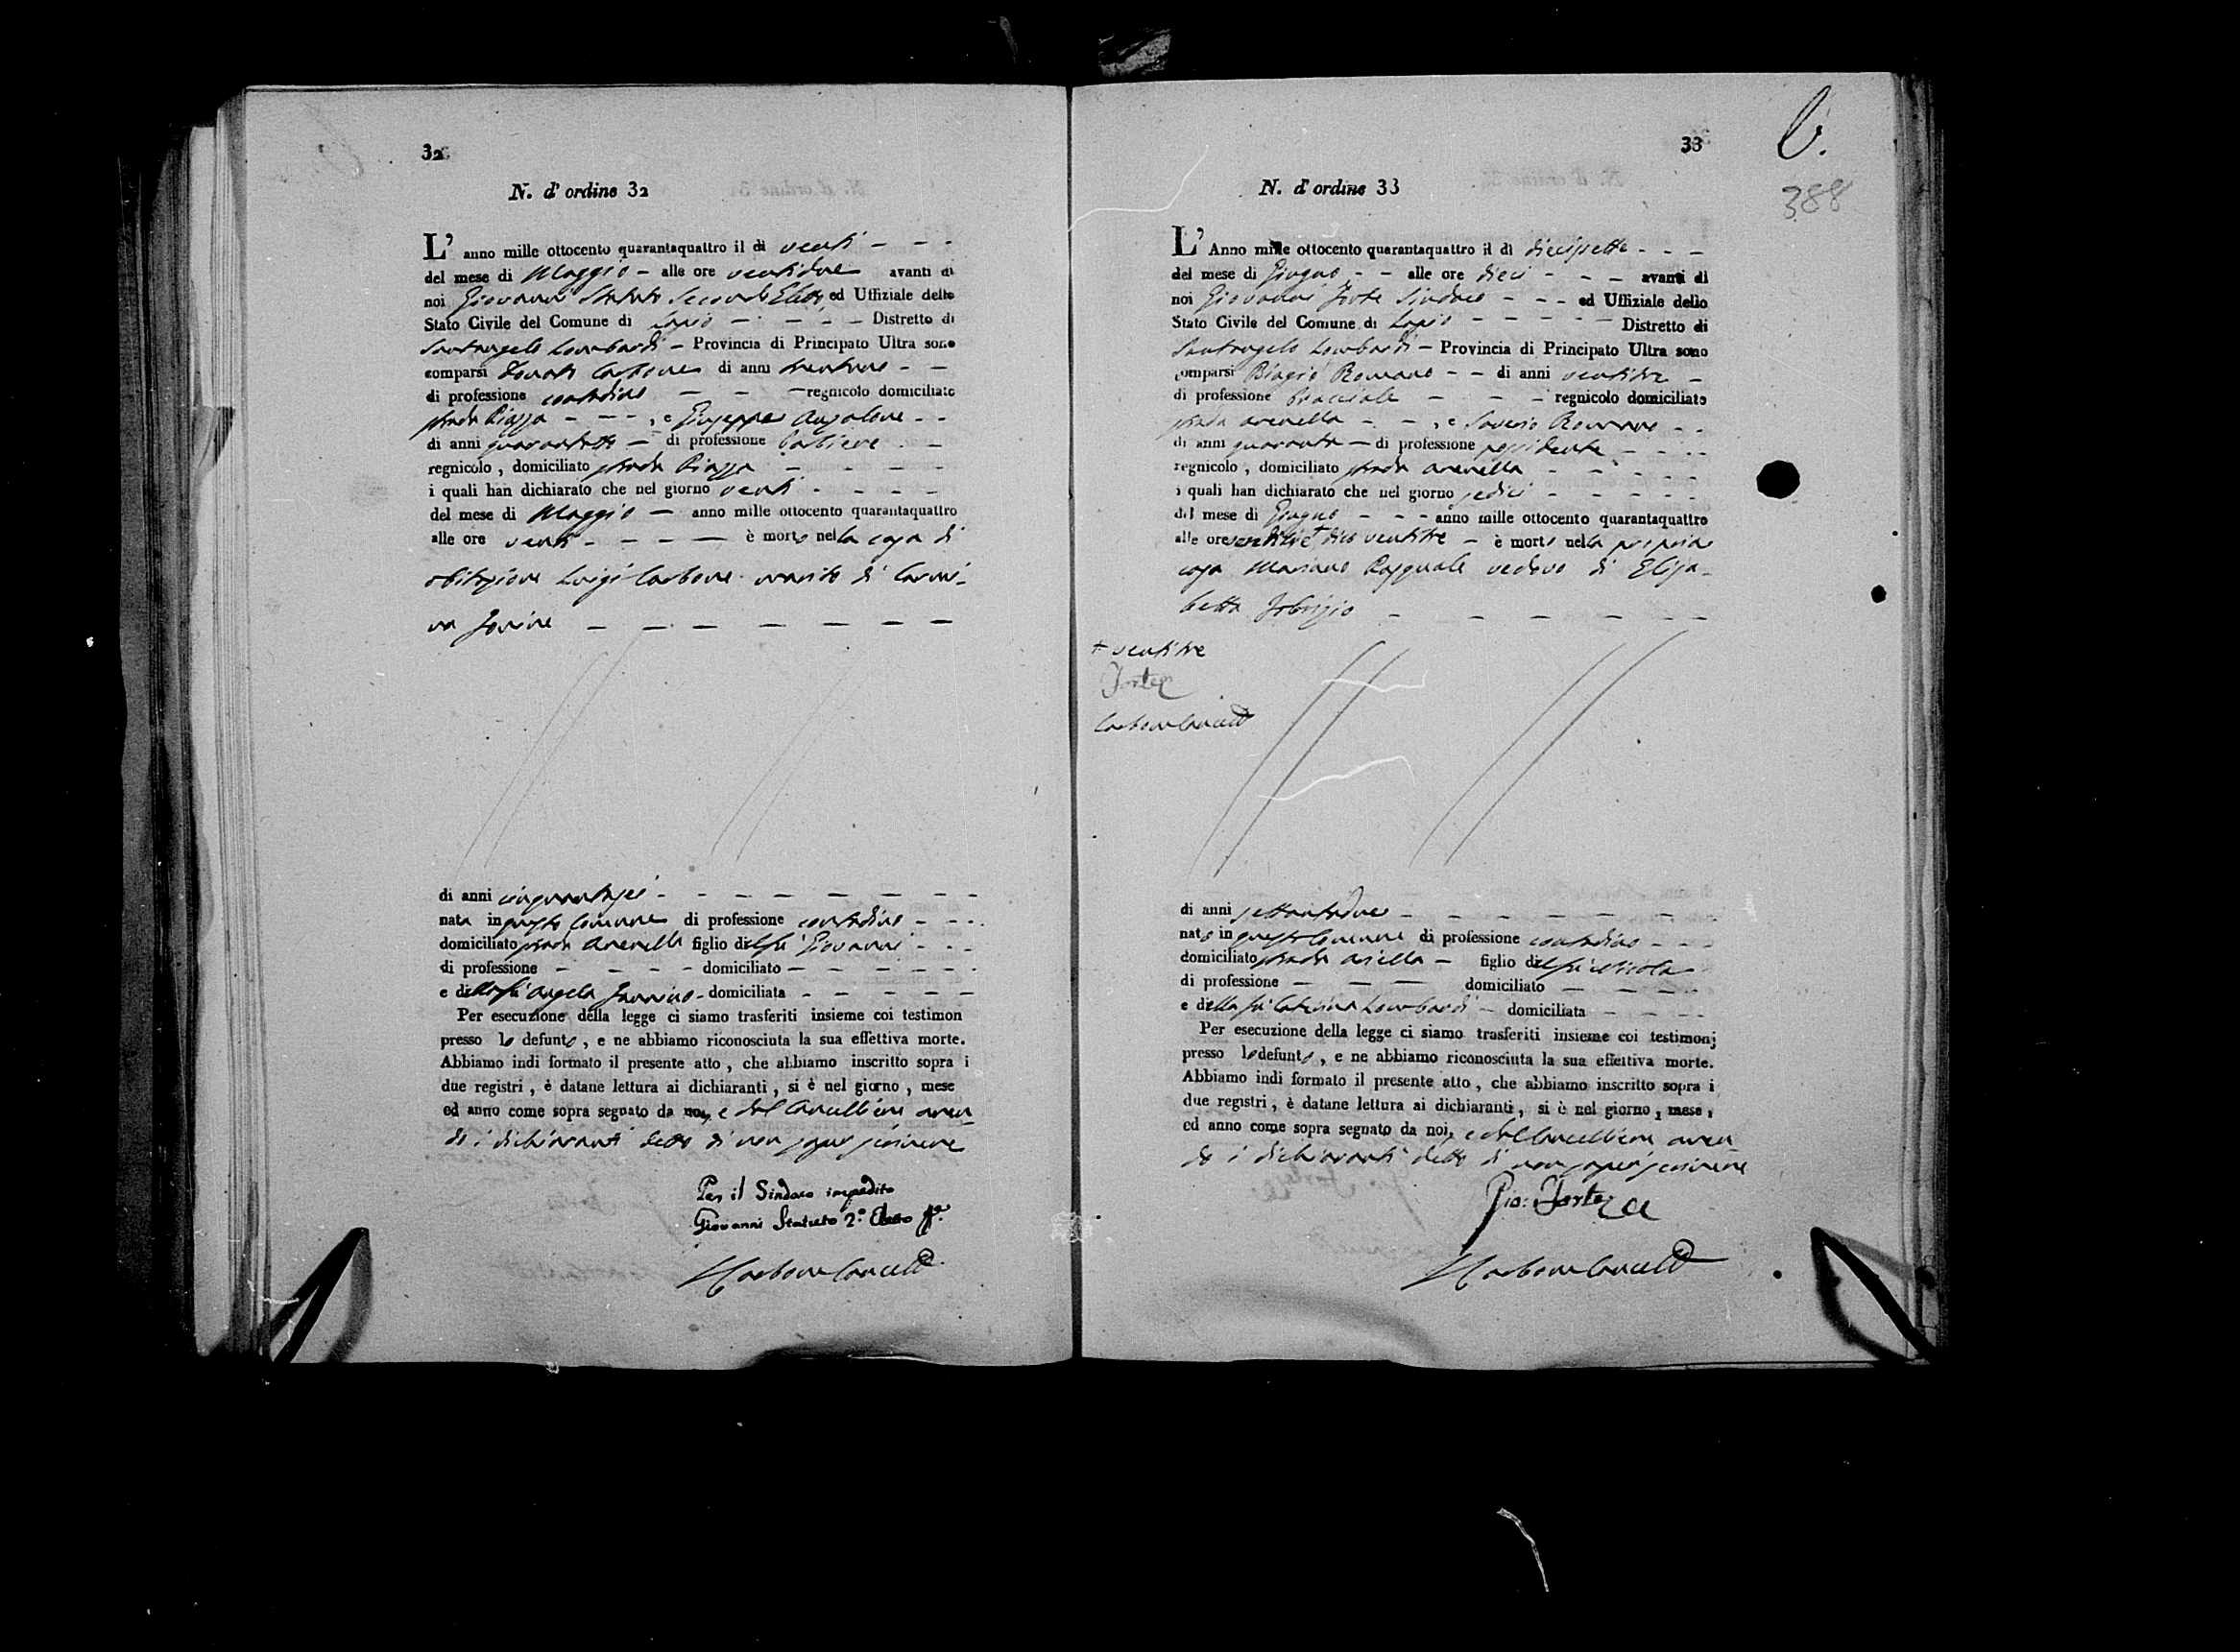 32
N. d' ordine 32
L' anno mille ottocento quarantaquattro il dì venti
del mese di Maggio alle ore ventidue avanti di
noi Giovanni Statuto Secondo Eletto ed Uffiziale dello
Stato Civile del Comune di Lapio Distretto di
Santangelo Lombardi Provincia di Principato Ultra sono
comparsi Donato Carbone di anni trentuno
di professione contadino regnicolo domiciliato
strada Piazza , e Giuseppe
di anni quarantotto di professione barbiere
regnicolo , domiciliato strada Piazza
i quali han dichiarato che nel giorno venti
del mese di Maggio anno mille ottocento quarantaquattro
alle ore venti è morto nella casa di
abitazione Luigi Carbone marito di Carmi-
na Jovine
di anni cinquantasei
nata in questo Comune di professione contadino
domiciliato strada Arenella figlio del fu Giovanni
di professione domiciliato
e della fu Angela domiciliata
Per esecuzione della legge ci siamo trasferiti insieme coi testimon
presso lo defunto , e ne abbiamo riconosciuta la sua effettiva morte.
Abbiamo indi formato il presente atto , che abbiamo inscritto sopra i
due registri , è datane lettura ai dichiaranti , si è nel giorno , mese
ed anno come sopra segnato da noi, e dal Cancelliere aven
do i dichiaranti detto di non saper scrivere
Per il Sindaco impedito
Giovanni Statuto 2.° Eletto
Carbone Cancell
33
388
N. d' ordine 33
L' Anno mille ottocento quarantaquattro il dì diecisette
del mese di Giugno alle ore dieci avanti di
noi Giovanni Forte Sindaco ed Uffiziale dello
Stato Civile del Comune di Lapio Distretto di
Santangelo Lombardi Provincia di Principato Ultra sono
comparsi Biagio Romano di anni ventitre
di professione bracciale regnicolo domiciliato
strada Arenella , e Saverio Romano
di anni quaranta di professione possidente
regnicolo , domiciliato strada Arenella
i quali han dichiarato che nel giorno sedici
del mese di Giugno anno mille ottocento quarantaquattro
alle ore ventitre + dico ventitre è morto nella propria
casa Mariano Pasquale vedovo di Elisa-
betta Fabrizio
+ ventitre
Forte
Carbone Cancell
di anni settantadue
nato in questo Comune di professione contadino
domiciliato strada Ariella figlio del fu Nicola
di professione domiciliato
e della fu Caterina Lombardi domiciliata
Per esecuzione della legge ci siamo trasferiti insieme coi testimonj
presso lo defunto , e ne abbiamo riconosciuta la sua effettiva morte.
Abbiamo indi formato il presente atto , che abbiamo inscritto sopra i
due registri , è datane lettura ai dichiaranti , si è nel giorno , mese ,
ed anno come sopra segnato da noi, e dal Cancelliere aven
do i dichiaranti detto di non saper scrivere
Gio: Forte
Carbone Cancell